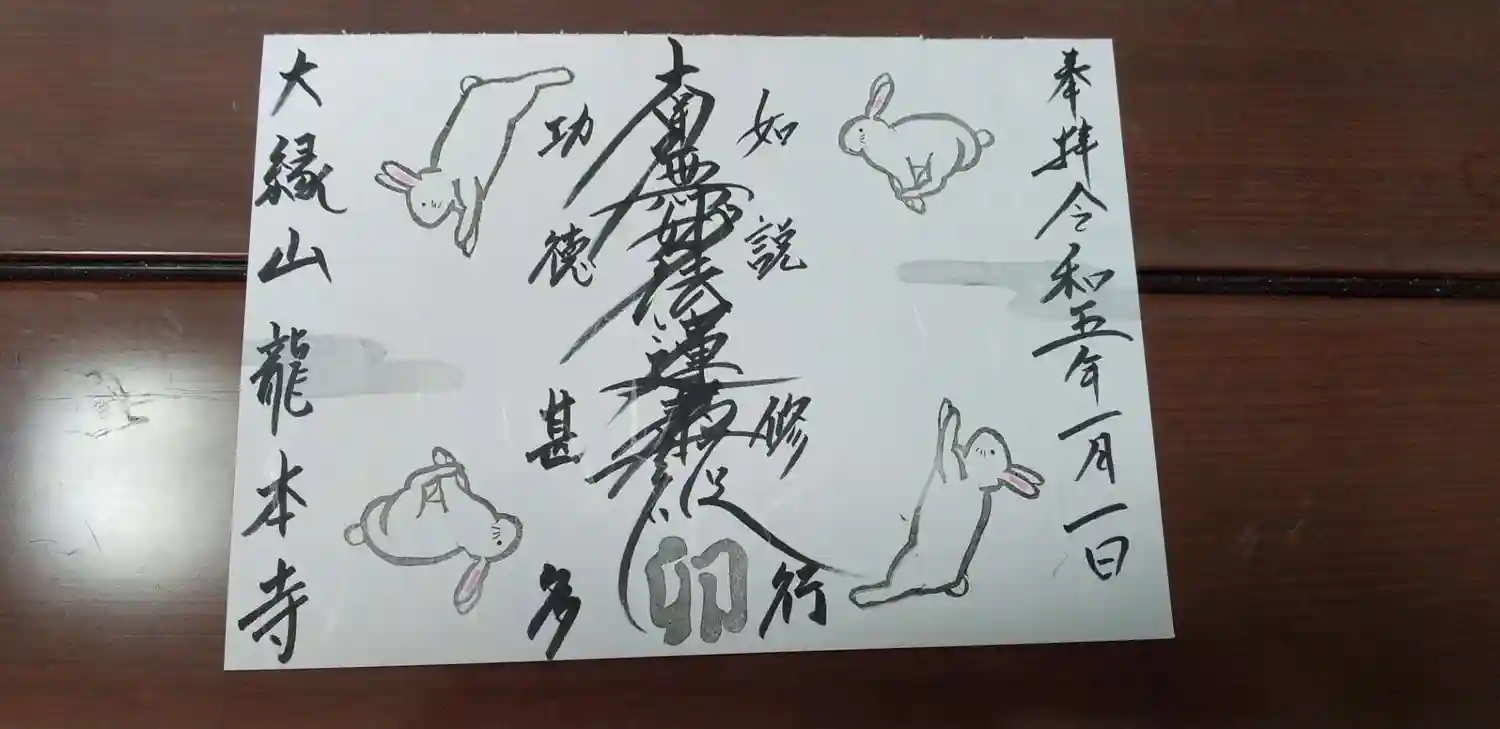 奉拝令和五年一月一日
如説修行
南無妙法蓮華経
卯
功徳甚多
大縁山龍本寺